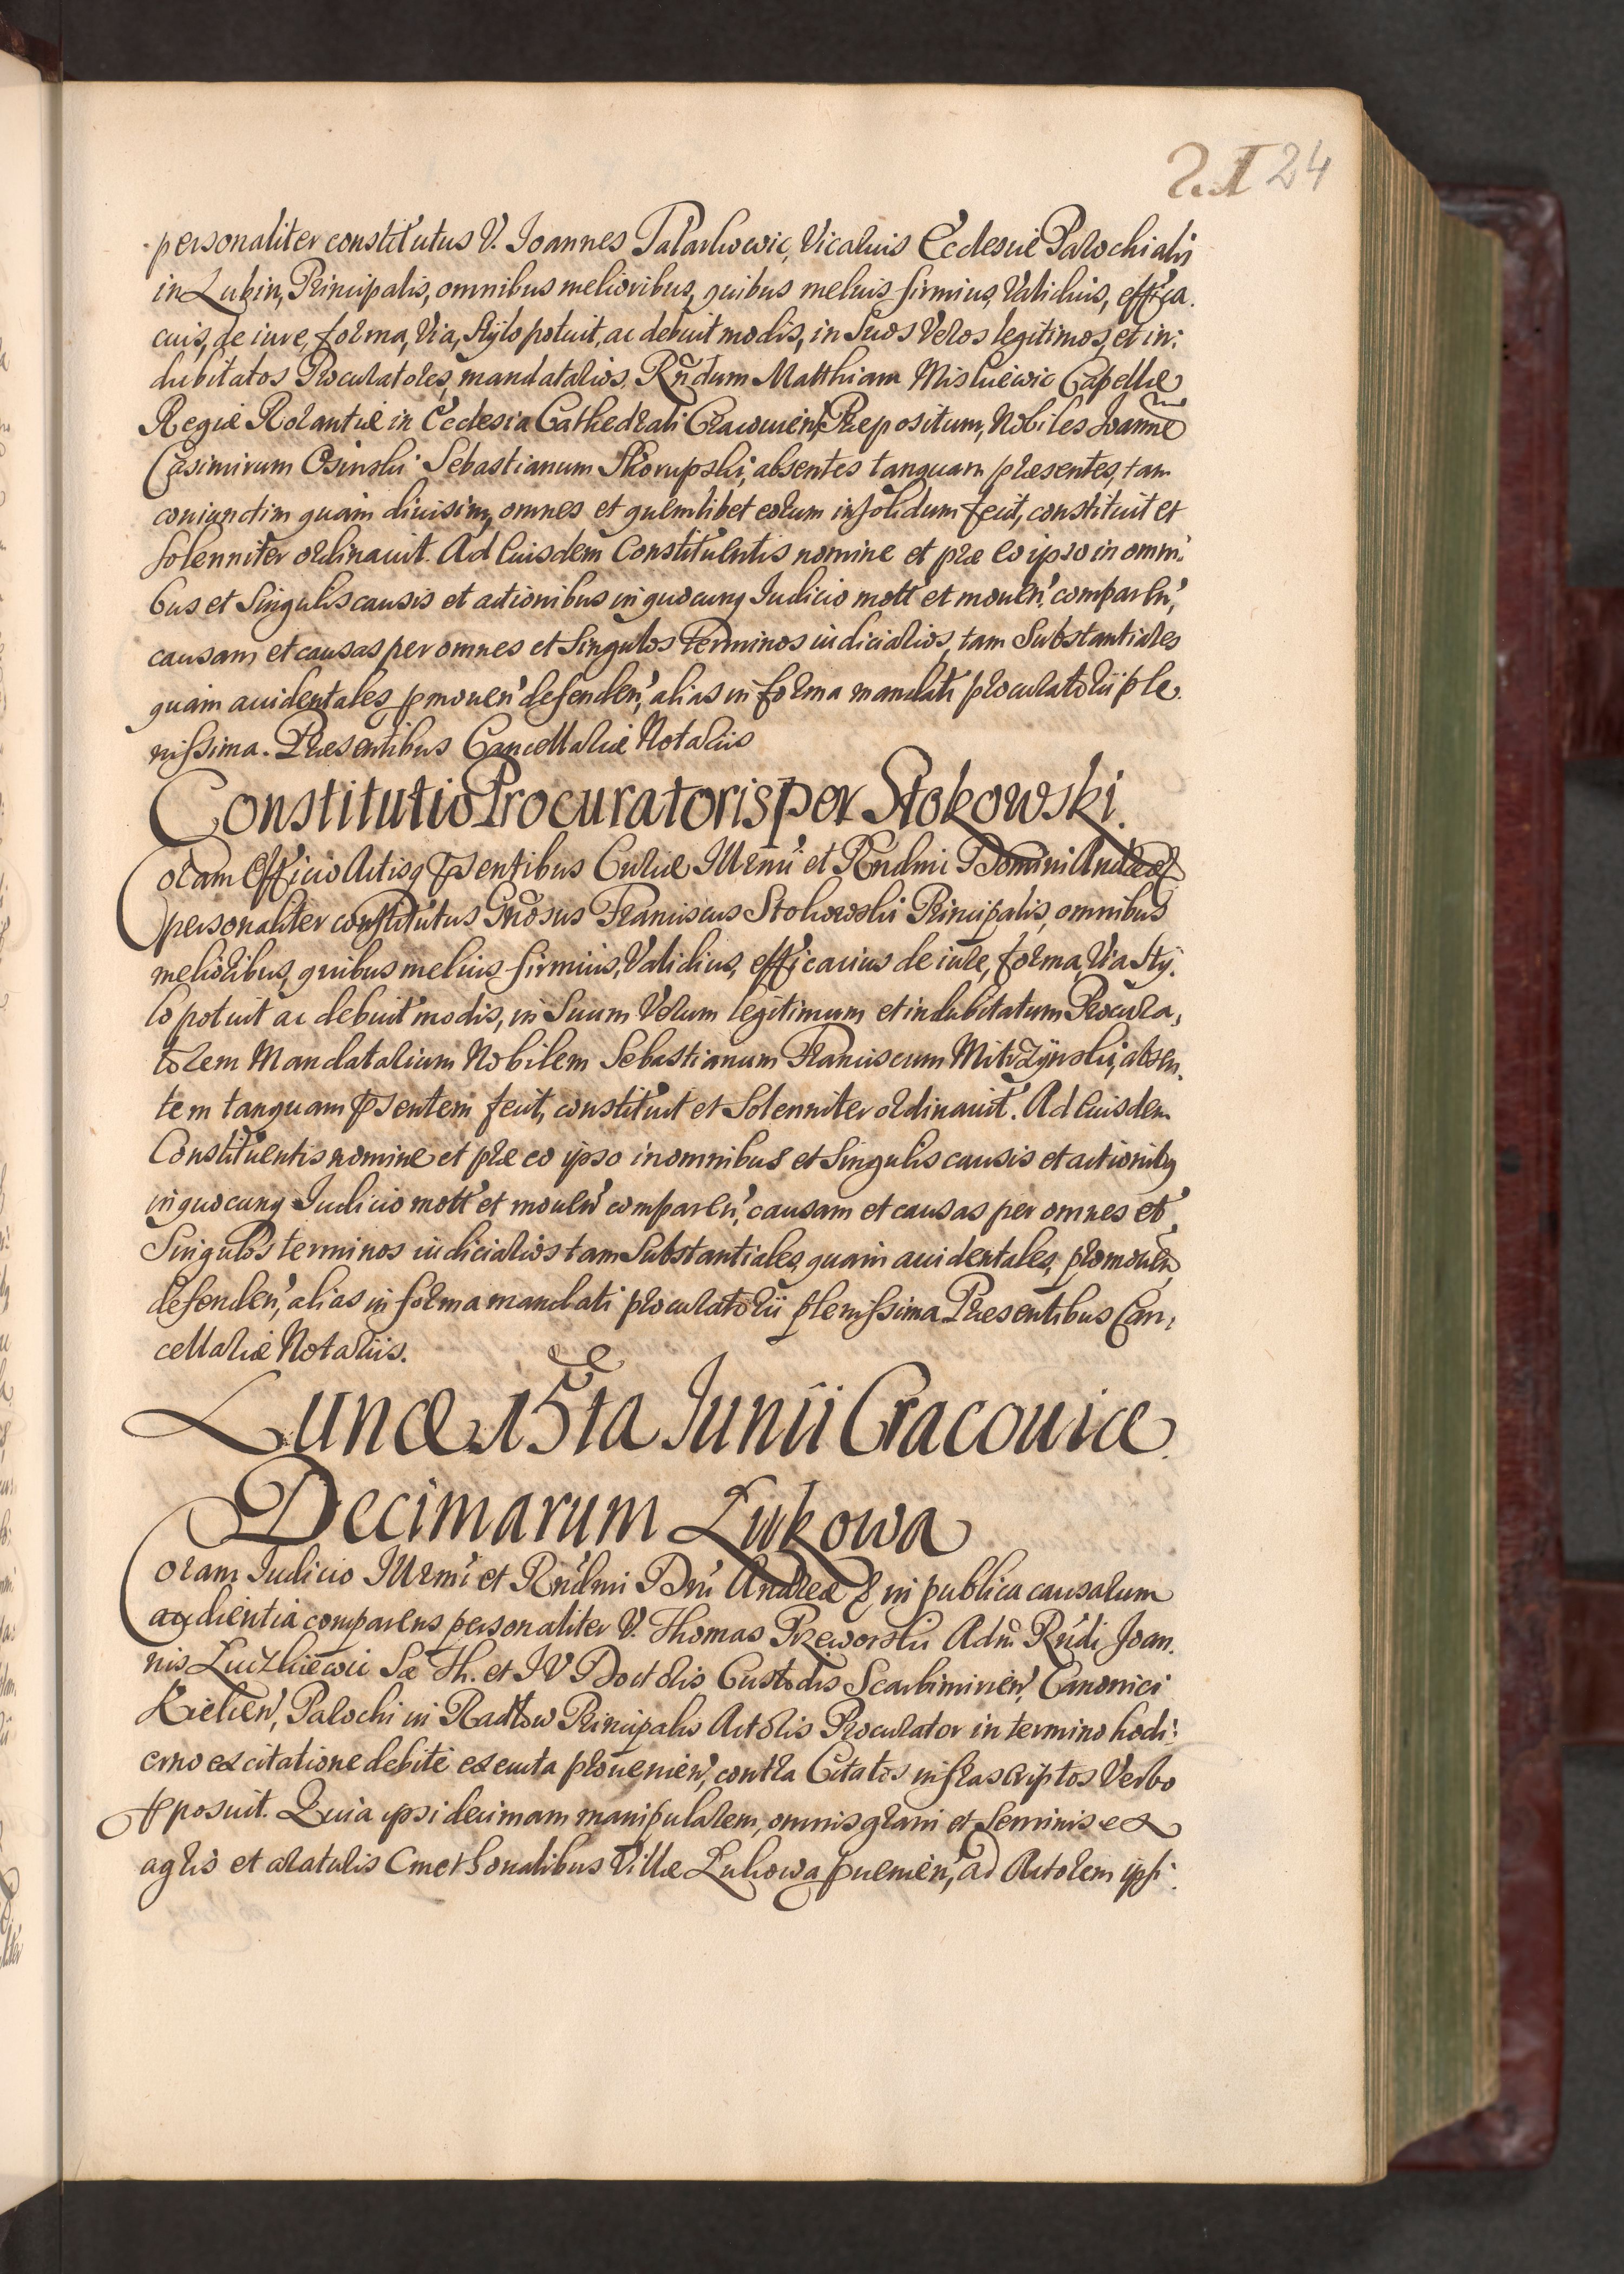 24
personaliter constitutus V. Joannes Vicarius Ecclesiæ Parochialis
in Lubin, Principalis, omnibus melioribus, quibus melius firmius, Validius, effica.
cius, de iure, forma, Via, Stylo potuit, ac debuit modis, in Suos Veros legitimos, et in:
dubitatos Procuratores, mandatarios. Rñdum Matthiam Capellæ
Regiæ Rorantiæ in Ecclesia Cathedrali Cracouien̕ Præpositum, Nobiles Joanne̅
Casimirum Osinski Sebastianum Skorupski, absentes tanquam præsentes, tam
coniunctim quam diuisim, omnes et quemlibet eorum in solidum fecit, constituit et
solenniter ordinauit. Ad Euisdem Constituentis nomine et præ eo ipso in omni:
bus et Singulis causis et actionibus in quocunq Iudicio mott̕ et mouen̕, comparen̕,
causam et causas per omnes et Singulos Terminos iudiciarios, tam Substantiales
quam accidentales, pmouen̕ defenden̕, alias in forma mandati procuratorii ple.
nissima. Præsentibus Cancellariæ Notariis
Constitutio Procuratoris per Stokowski.
Coram Officio Actisq Psentibus Curiæ Illrmi et Rndmi Domini Andreæ &
personaliter constitutus Gnosus Franciscus Stokowski Principalis, omnibus
melioribus, quibus melius firmius, Validius, efficacius de iure, forma, Via Sty.
lo potuit ac debuit modis, in Suum Verum legitimum et indubitatum Procura,
torem Mandatarium Nobilem Sebastianum Franciscum absen.
tem tanquam Psentem fecit, constituit et Solenniter ordinauit. Ad Euisdem
Constituentis nomine et præ eo ipso in omnibus et Singulis causis et actionibq
in quocunq Iudicio mott̕ et mouen̕ comparen̕, causam et causas per omnes et
Singulos terminos iudiciarios tam Substantiales, quam accidentales, promouen̕,
defenden̕, alias in forma mandati procuratorii plenissima. Præsentibus Can,
cellariæ Notariis.
Lunæ 15ta Junii Cracouiæ.
Decimarum Łukowa
Coram Iudicio Illrmi et Rndmi Dni Andreæ & in publica causarum
audientia comparens personaliter V. Thomas Przeworski Adm̃ Rndi Joan.
nis Sæ Th. et IV Doctoris Custodis Scarbimirien̕, Canonici
Kielcen̕, Parochi in Radłow Principalis Actoris Procurator in termino hodi:
erno ex citatione debite executa prouenien̕, contra Citatos infrascriptos Verbo
pposuit. Quia ipsi decimam manipularem, omnis grani et Seminis ex
agris et araturis Cmethonalibus Villæ Lukowa puenien̕, ad Actorem ipsi: